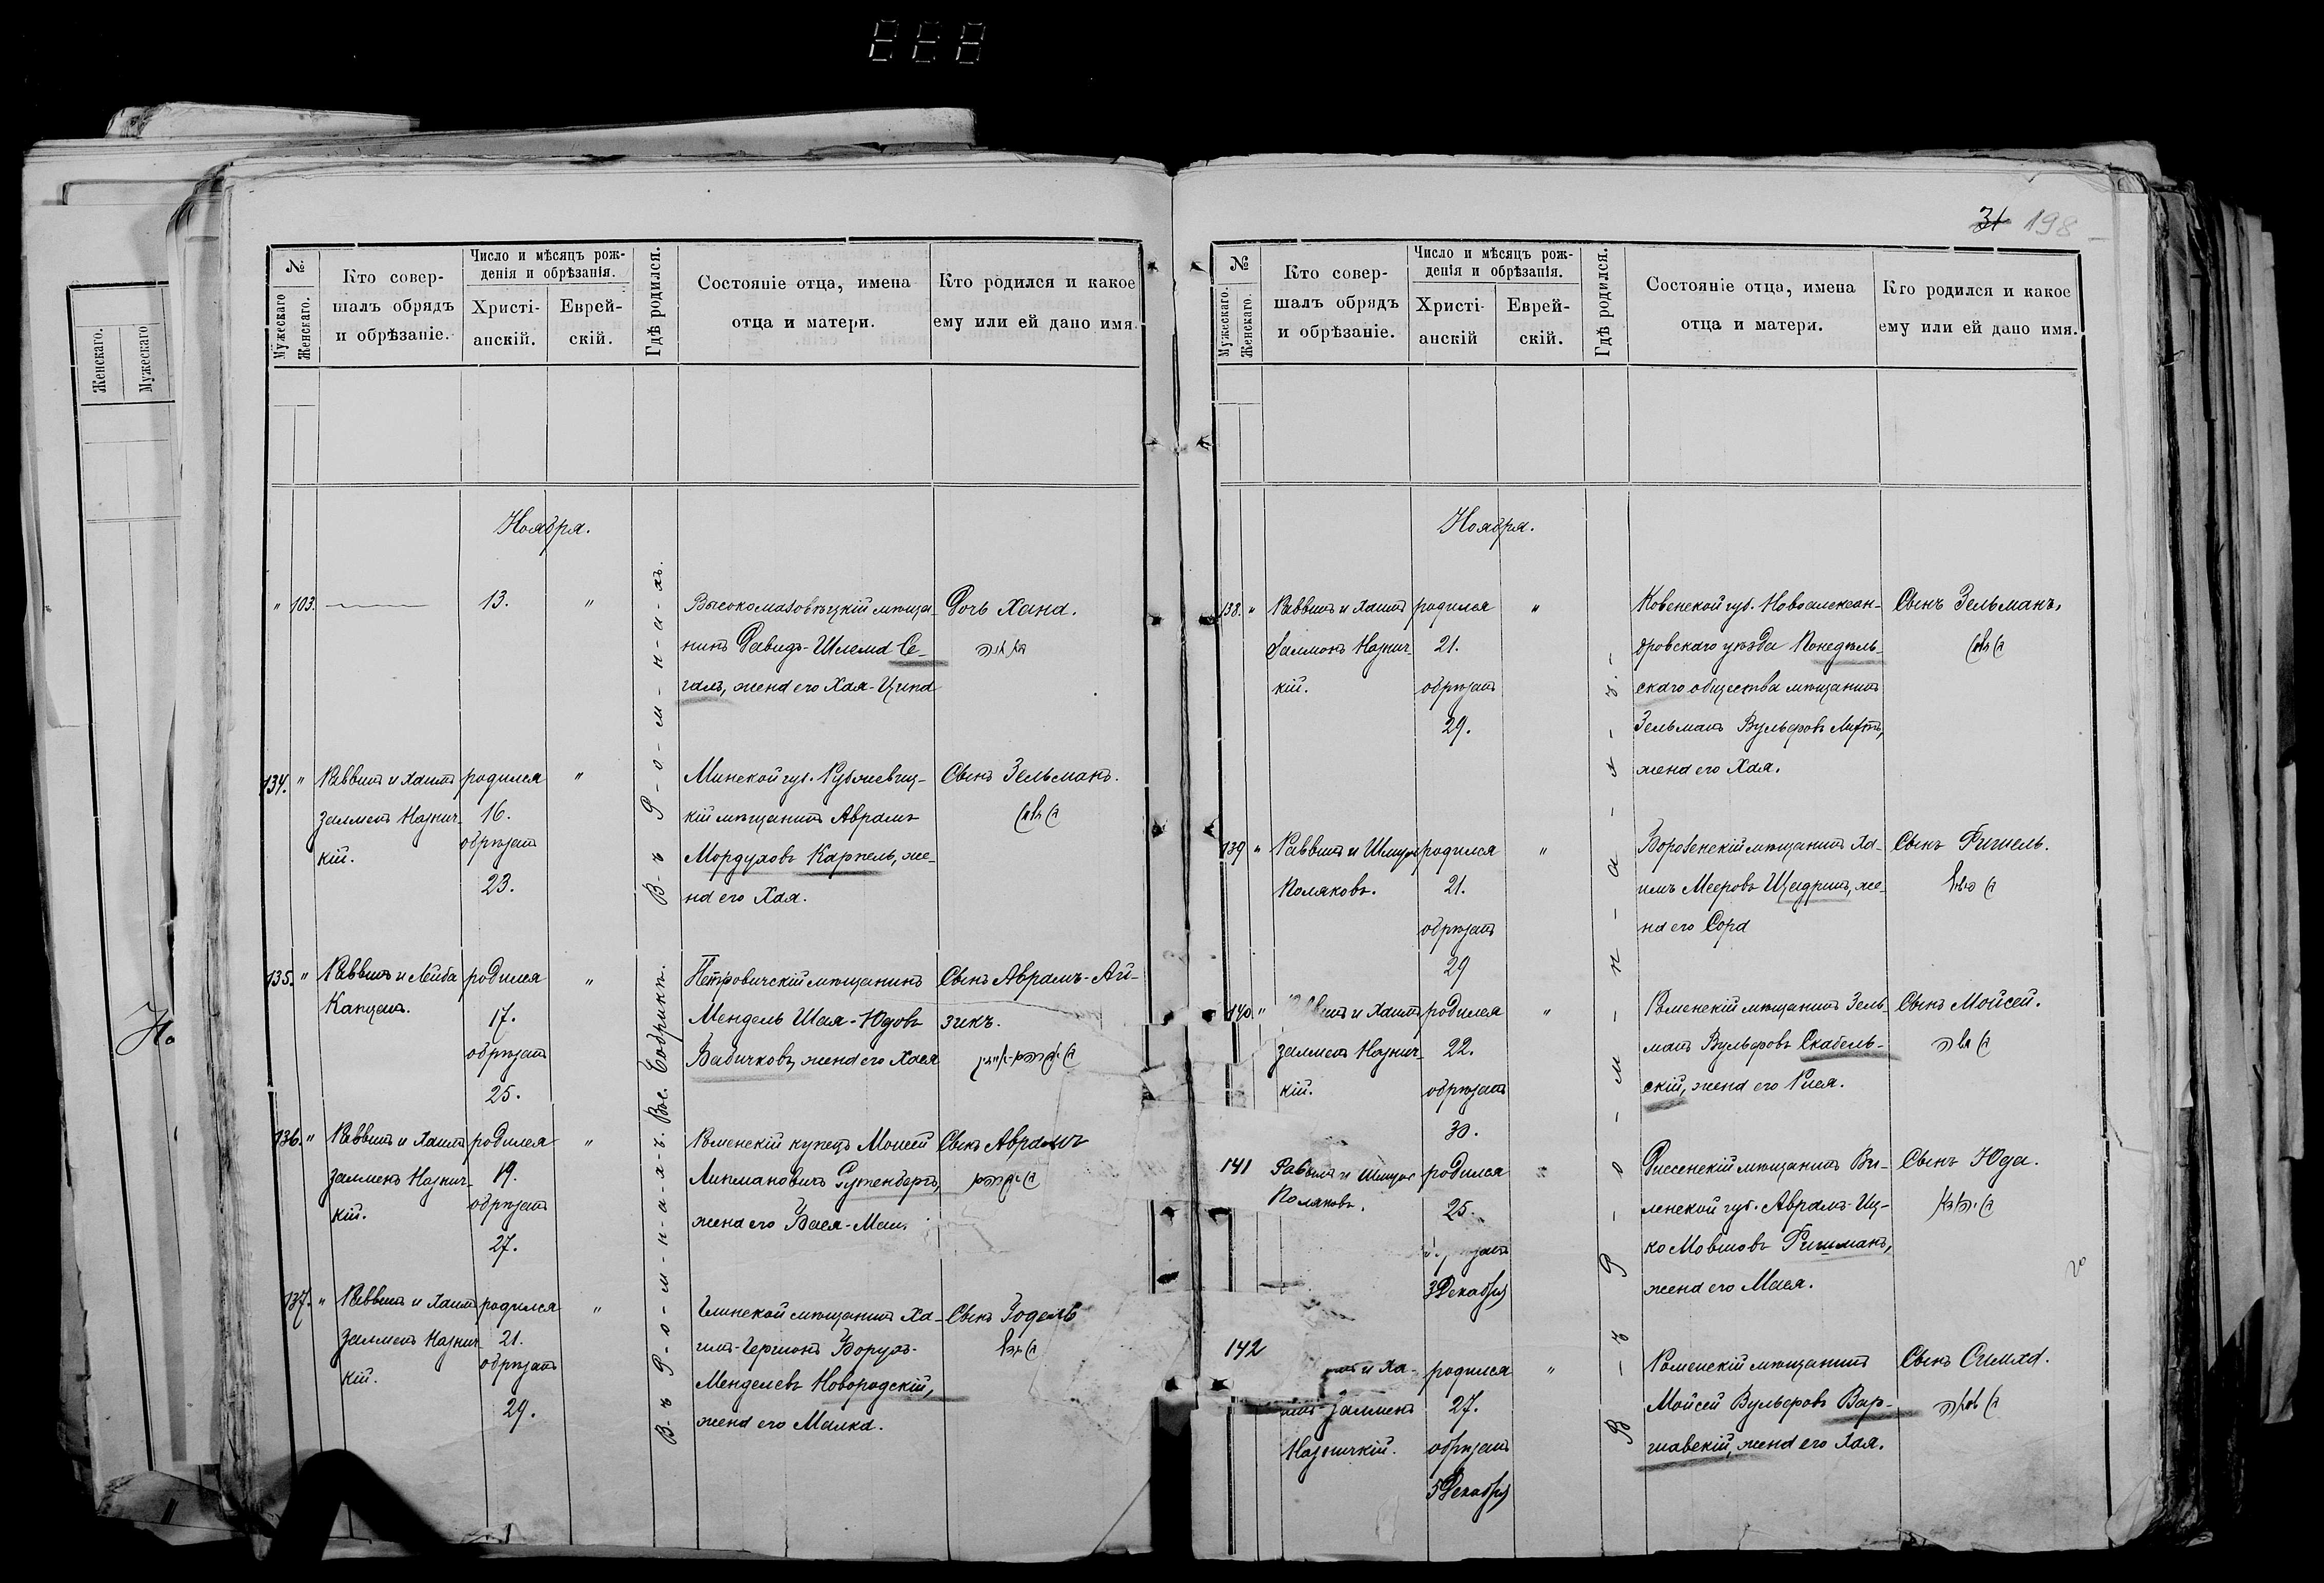 31 198
№
Мужескаго
Женскаго.
Кто совер-
шалъ обрядъ
и обрѣзаніе.
Число и мѣсяцъ рож-
денія и обрѣзанія.
Христі-
анскій.
Еврей-
скій.
Гдѣ родился.
Состояніе отца, имена
отца и матери.
Кто родился и какое
ему или ей дано имя.
Ноября.
" 103. 13. "
Высокомазовѣцкій мѣща-
нинъ Давидъ-Шлема Се-
галъ, жена его Хая-Ципа
Дочь Хана.
134. "
Раввинъ и Хаимъ
Залменъ Назнич-
кій.
родился
16.
обрѣзанъ
23.
"
Минской губ. Рубжевиц-
кій мѣщанинъ Аврамъ
Мордуховъ Карпель, же-
на его Хая.
Сынъ Зельманъ.
135. "
Раввинъ и Лейба
Канцанъ.
родился
17.
обрѣзанъ
25.
"
Петровичскій мѣщанинъ
Мендель Шая-Юдовъ
Бабичковъ, жена его Хася
Сынъ Аврамъ-Ай-
зикъ.
136. "
Раввинъ и Хаимъ
Залменъ Назнич-
кій.
родился
19.
обрѣзанъ
27.
"
Роменскій купецъ Моисей
Липмановичъ Рутенбергъ,
жена его Бася-Маи.
Сынъ Аврамъ
137. "
Раввинъ и Хаимъ
Залменъ Назнич-
кій.
родился
21.
обрѣзанъ
29.
"
Глинской мѣщанинъ Ха-
имъ-Гершонъ Борухъ-
Менделевъ Новородскій,
жена его Малка.
Сынъ Іодель
В-ъ Р-о-м-н-а-х-ъ.
№
Мужескаго.
Женскаго.
Кто совер-
шалъ обрядъ
и обрѣзаніе.
Число и мѣсяцъ рож-
денія и обрѣзанія.
Христі-
анскій
Еврей-
скій.
Гдѣ родился.
Состояніе отца, имена
отца и матери.
Кто родился и какое
ему или ей дано имя.
Ноября.
138. "
Раввинъ и Хаимъ
Залмонъ Назнич-
кій.
родился
21.
обрѣзанъ
29.
"
Ковенской губ. Новоалексан-
дровскаго уѣзда Понедѣль-
скаго общества мѣщанинъ
Зельманъ Вульфовъ Лифтъ,
жена его Хая.
Сынъ Зельманъ.
139 "
Раввинъ и Шмуль
Поляковъ.
родился
21.
обрѣзанъ
29
"
Боровенскій мѣщанинъ Ха-
имъ Мееровъ Щедринъ, же-
на его Сора
Сынъ Фишель.
140. "
и Хаимъ
Залменъ Назнич-
кій.
родился
22.
обрѣзанъ
30.
"
Роменскій мѣщанинъ Зель-
манъ Вульфовъ Скабель-
скій, жена его Рися.
Сынъ Мойсей.
141
Раввинъ и Шмуль
Поляковъ.
родился
25.
обрѣзанъ
3 Декабря
"
Дисенскій мѣщанинъ Ви-
ленской губ. Аврамъ-Иц-
ко Мовшовъ Фишманъ,
жена его Мася.
Сынъ Юда.
142
и Ха-
имъ-Залменъ
Назничкій.
родился
27.
обрѣзанъ
5 Декабря
"
Роменскій мѣщанинъ
Мойсей Вульфовъ Вар-
шавскій, жена его Хая.
Сынъ Симха.
В-ъ Р-о-м-н-а-х-ъ.